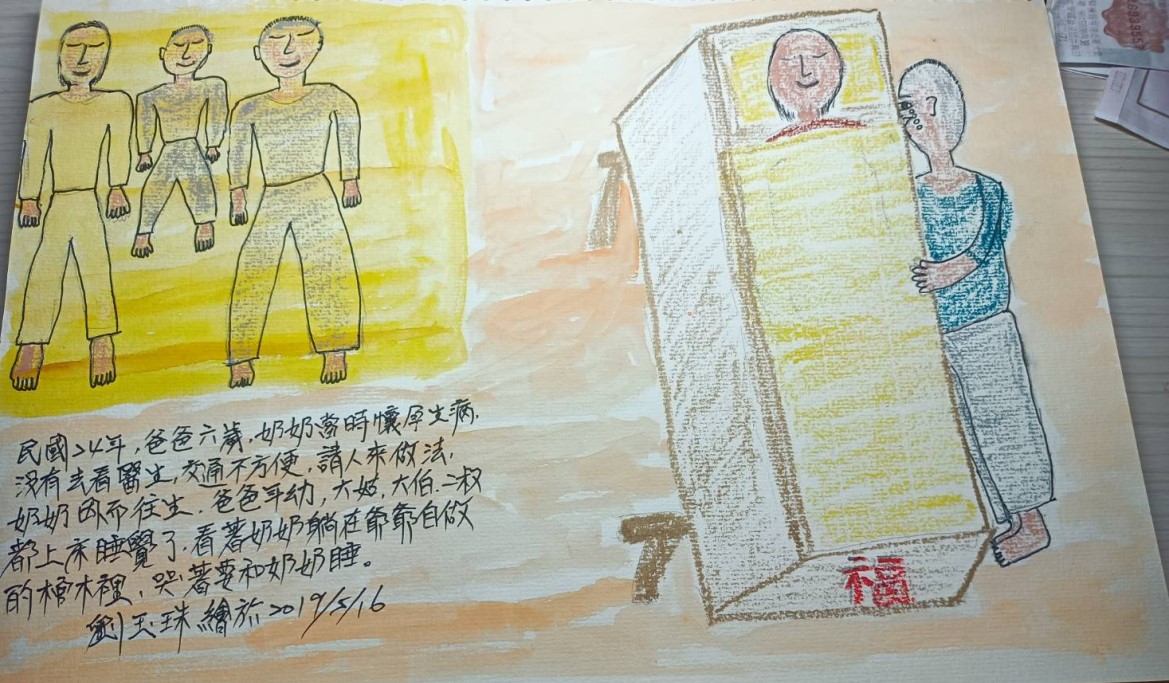 民國24年,爸爸六歲,奶奶當時懷孕生病,
沒有去看醫生,交通不方便,請人來做法,
奶奶因而往生.爸爸年幼,大姑,大伯.二叔
都上床睡覺了,看著奶奶躺在爺爺自做
的棺木裡,哭著要和奶奶睡。
劉玉珠繪於2019/5/16
福